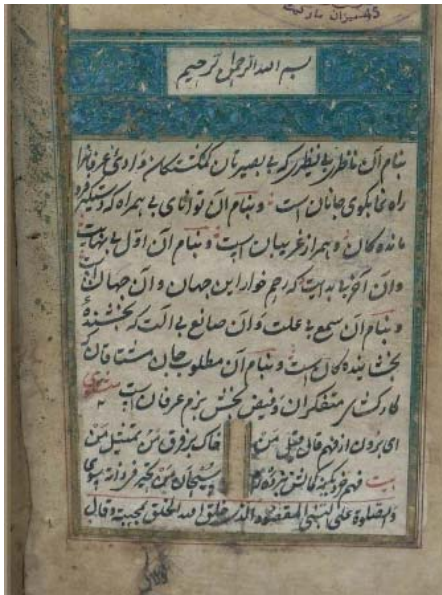 بسم الله الرحمن الرحیم
بنام آن ناظر بی نظیر که بی بصیرتان گمگشتگان وادی عرفانرا
راه نما بکوی جانان است و بنام آن توانای بی همراه که دستگیر فرو
مانده کان و همراز غریبان است و بنام آن اول بی نهایت
وان آخر بی بدایت که رحم خوار این جهان وان جهان است
و بنام آن سمیع بی علت وان صانع بی الت که بخشنده
بخشاینده کان است و بنام آن مطلوب جان مشتاقان
کارکشای متفکران و فیض بخش بزم عرفان است مثنوی
ای برون از فهم قال و قیل من خاک بر فرق من و تمثیل من
بیت فهم خرد
والصلوة علی النبی المقصود الذی خلق الله الخلق لمحبته وقال